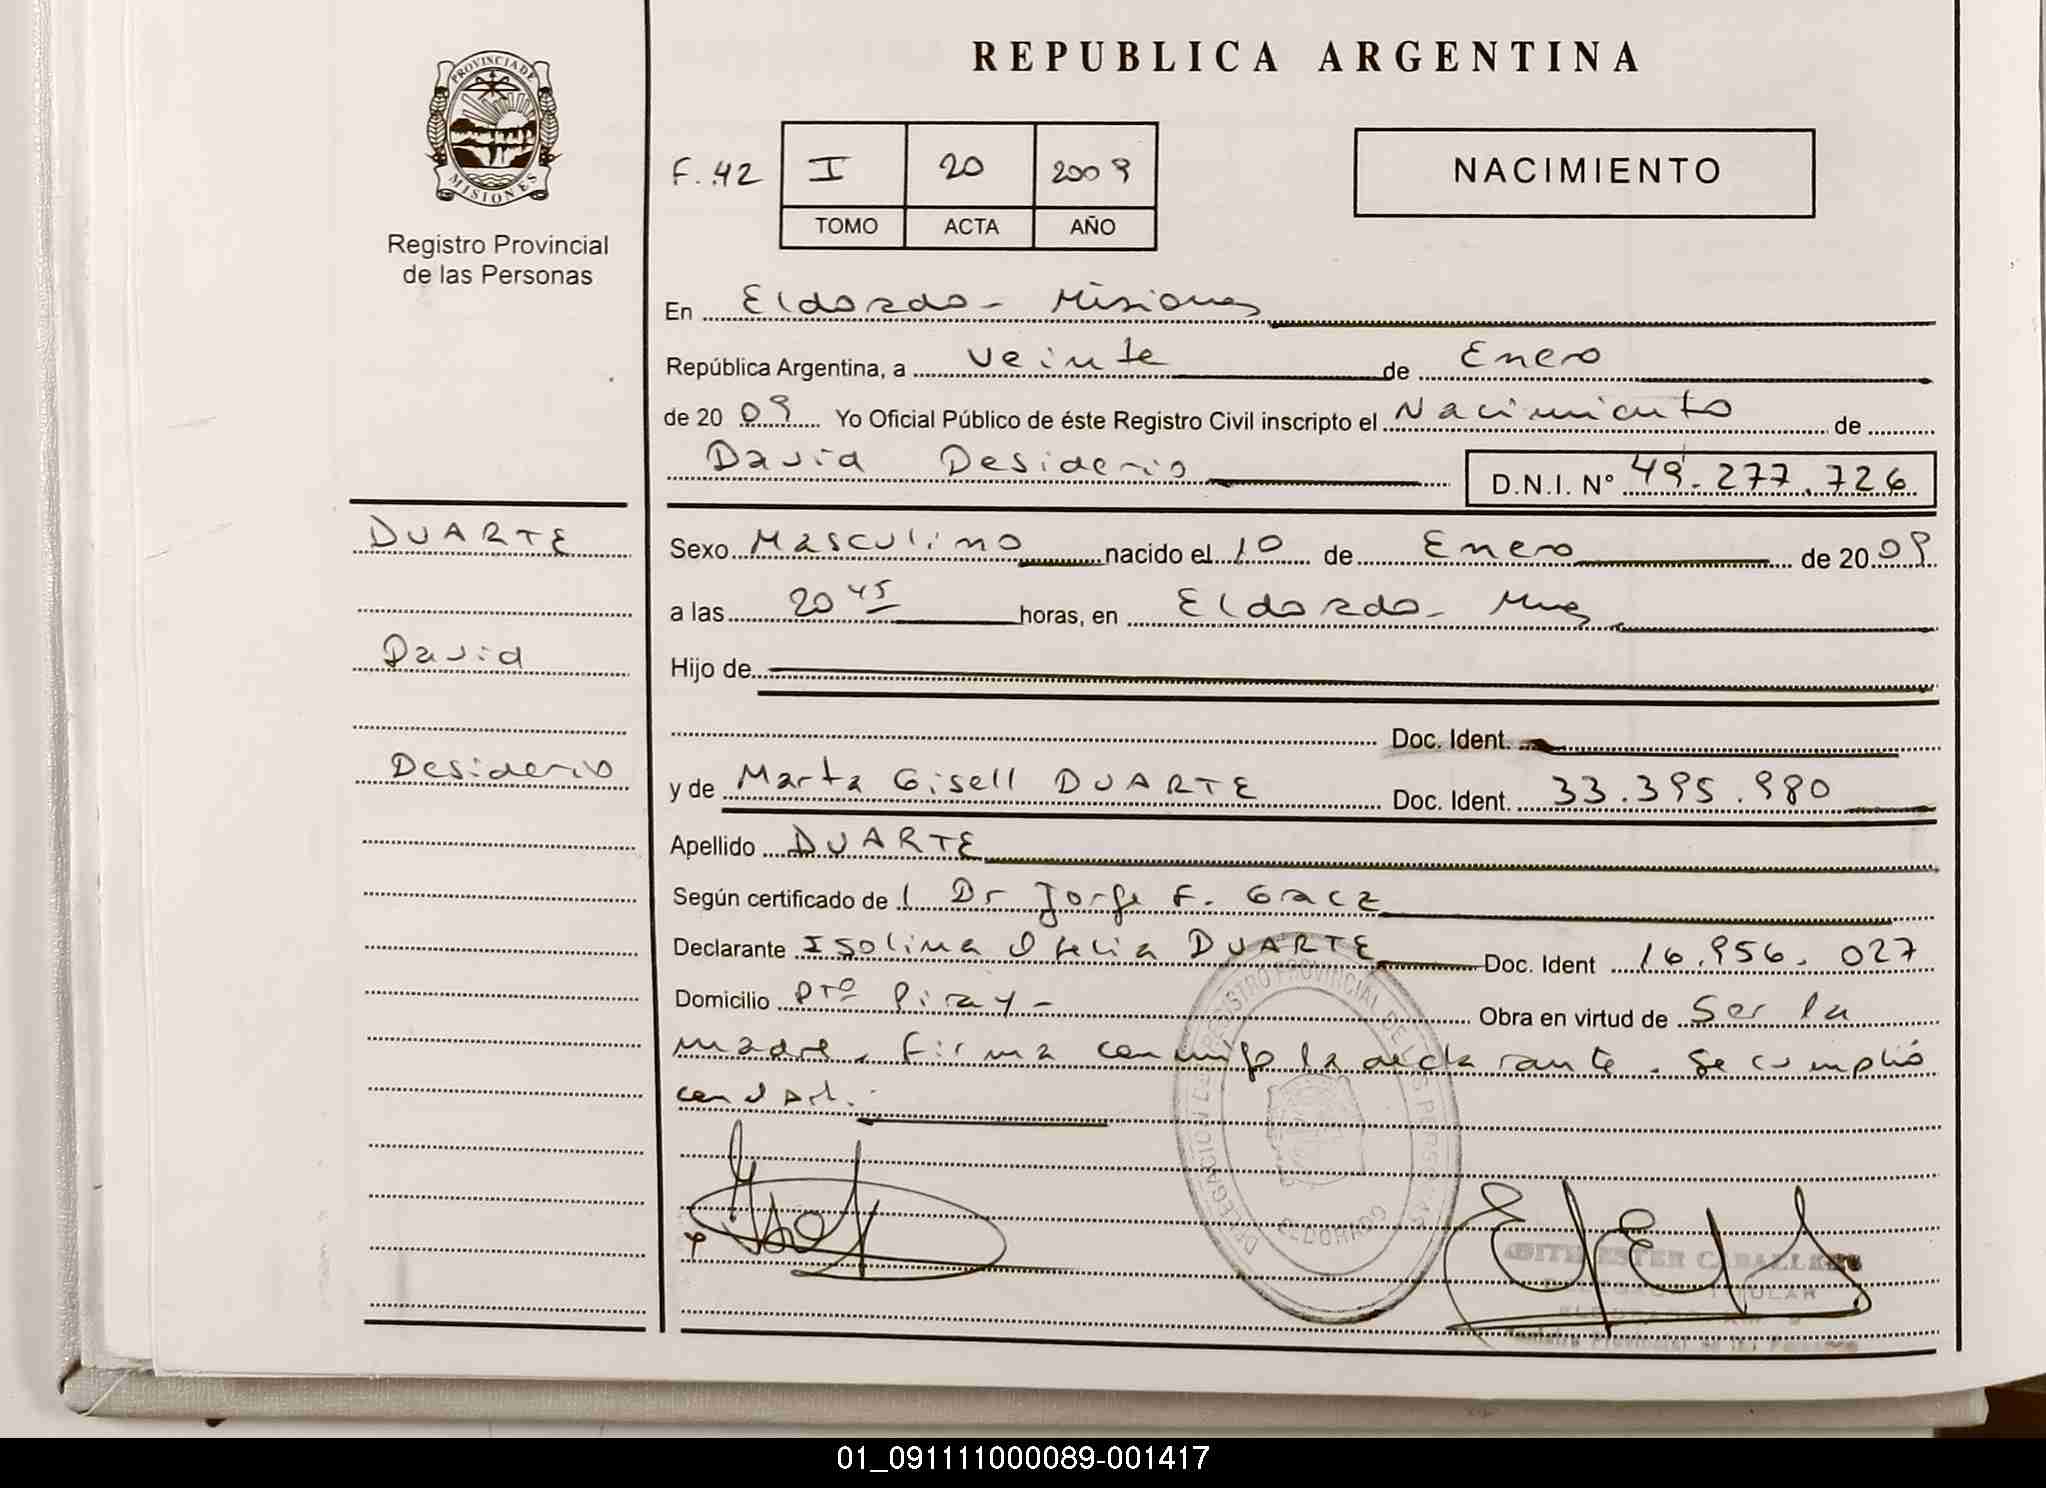 PROVINCIA DE
MISIONES
Registro Provincial
de las Personas
REPUBLICA ARGENTINA
F. 42 I 20 2009
TOMO ACTA AÑO
NACIMIENTO
En Eldorado - Misiones
República Argentina, a veinte de Enero
de 20 09 Yo Oficial Público de éste Registro Civil inscripto el Nacimiento de
David Desiderio D.N.I. Nº 49.277.726
DUARTE
Sexo Masculino nacido el 10 de Enero de 20 09
a las 20 45 horas, en Eldorado - Mnes
David
Hijo de
Doc. Ident.
Desiderio
y de Marta Gisell DUARTE Doc. Ident. 33.395.980
Apellido DUARTE
Según certificado de l Dr Jorge F.
Declarante Isolina Ofelia DUARTE Doc. Ident 16.956.027
Domicilio Pto Piray - Obra en virtud de Ser la
madre. Firma conmigo la declarante. Se cumplió
con el Art.
DELEGACION REGISTRO PROVINCIAL DE LAS PERSONAS
ELDORADO
ESTER CABALLERO
TITULAR
01_091111000089-001417